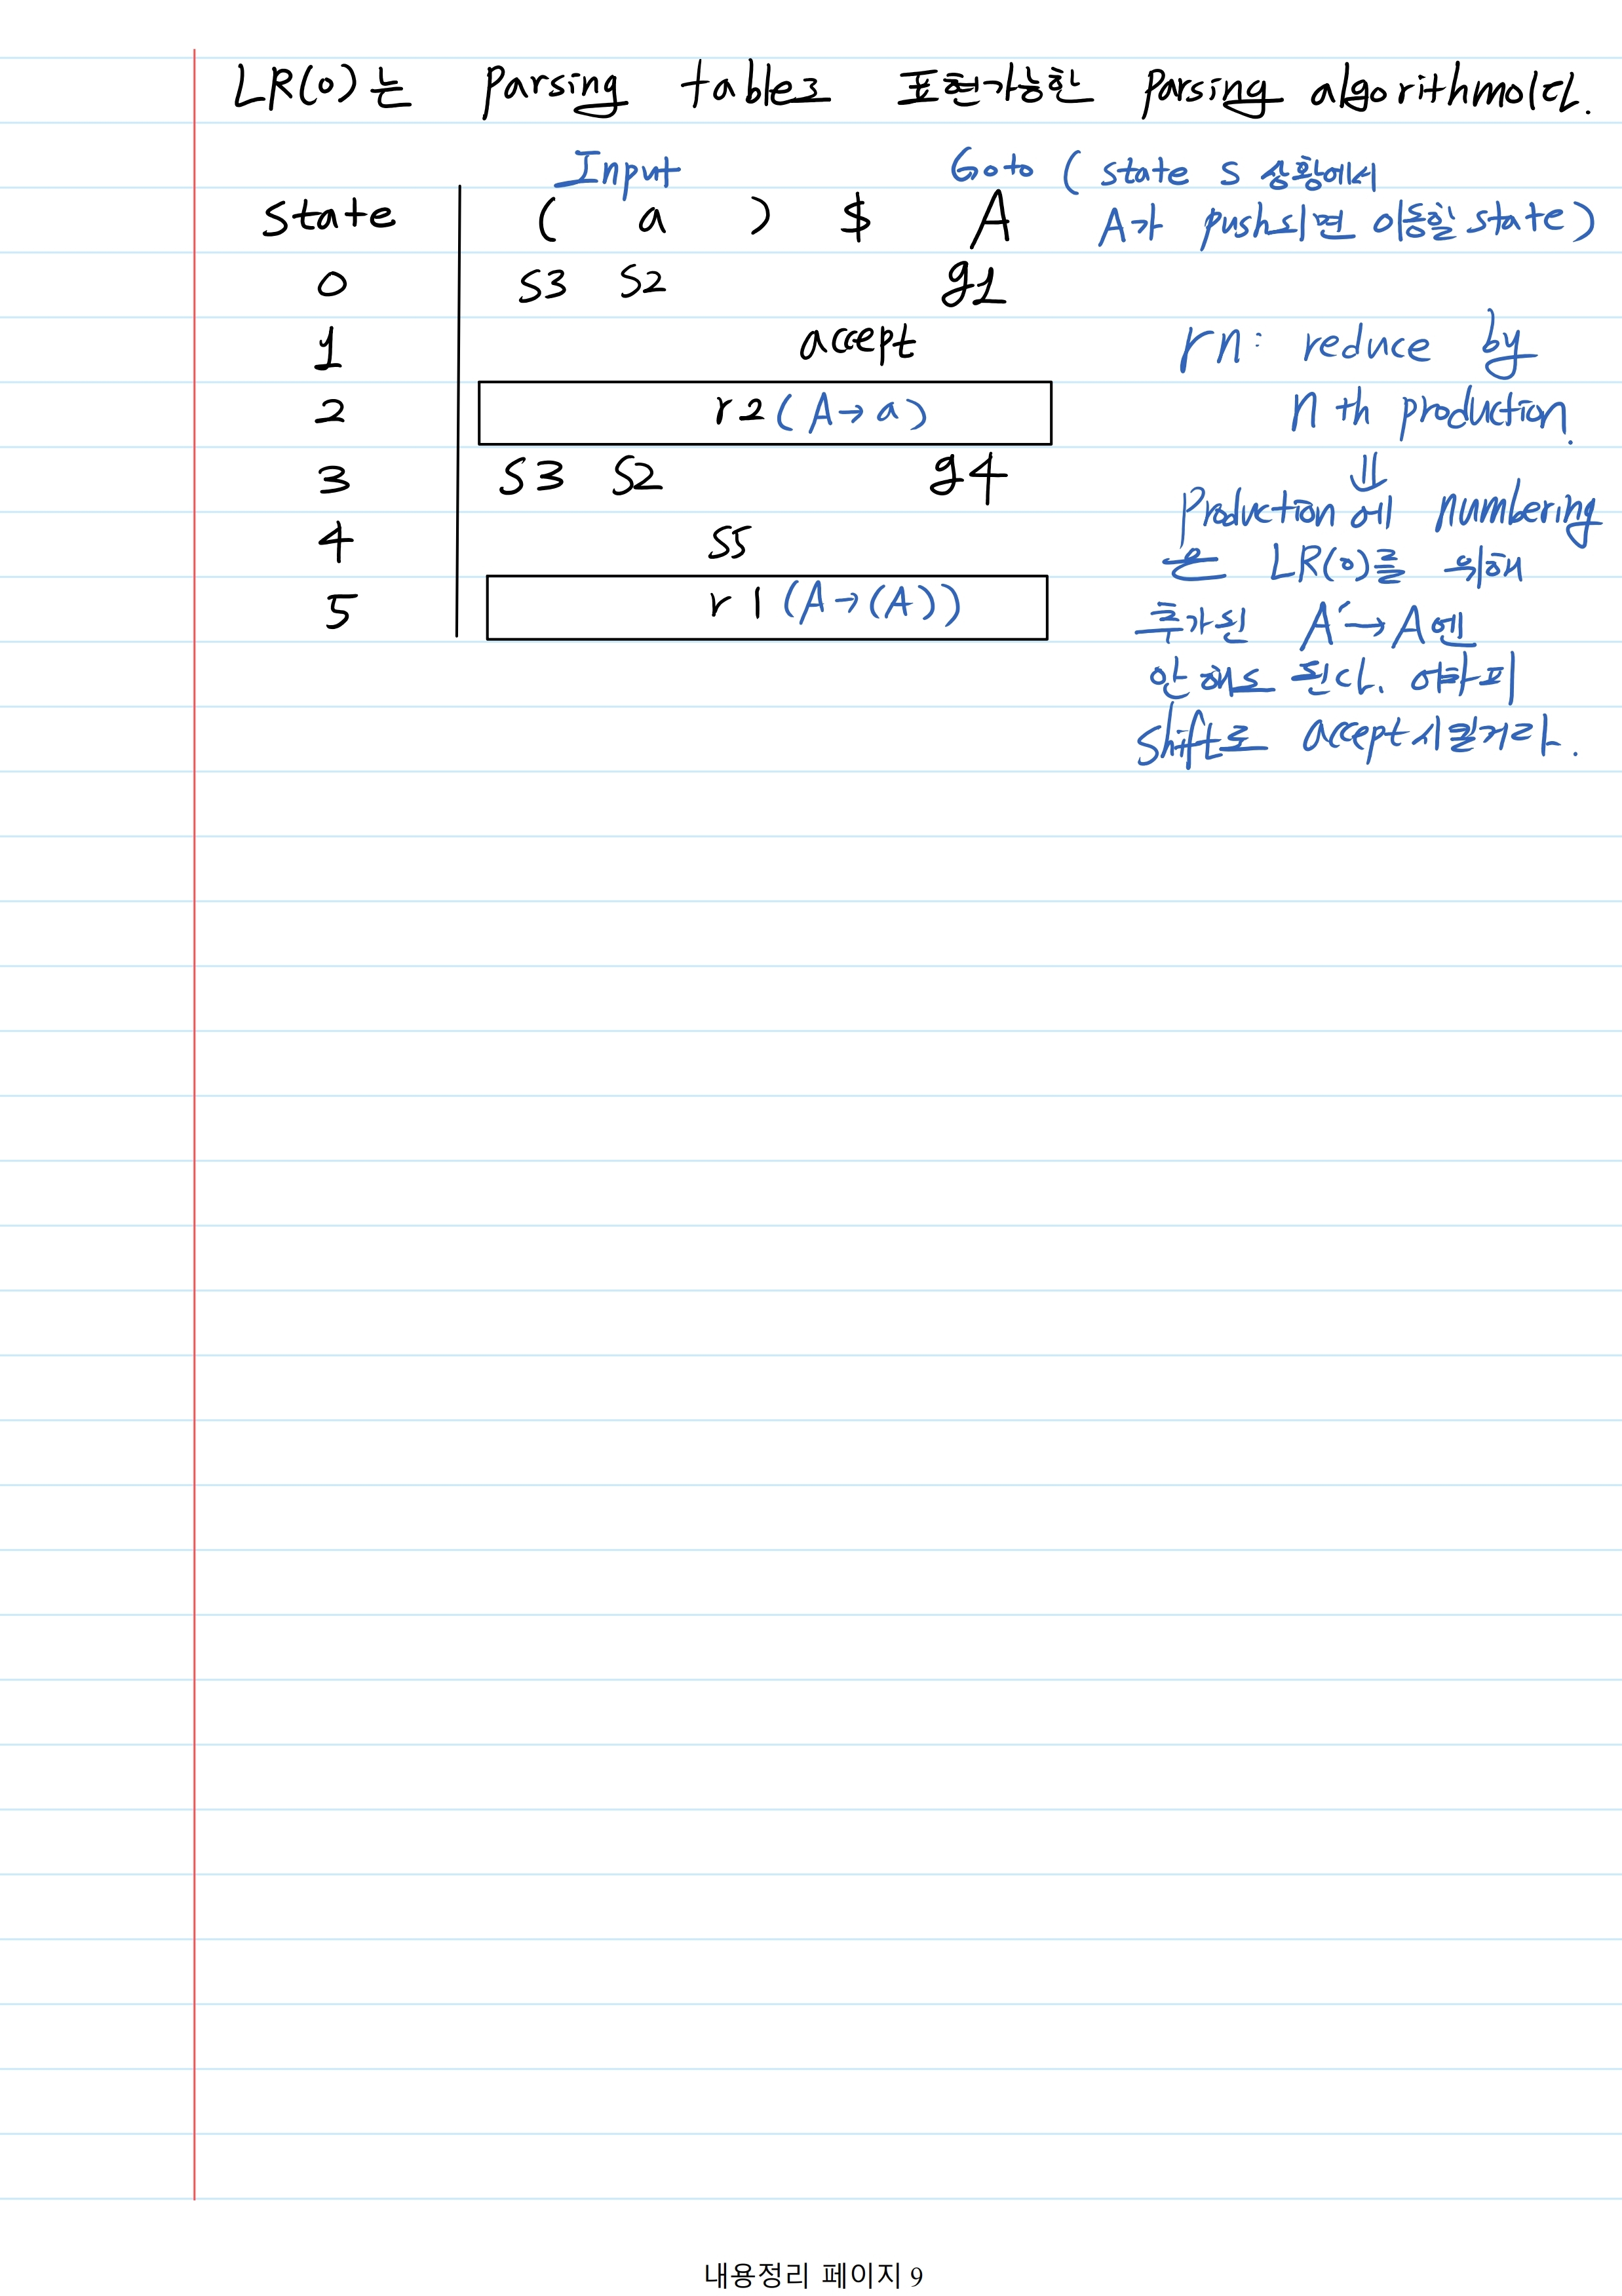 LR(0)는 Parsing table로 표현가능한 Parsing algorithm이다.
Input Goto ( state s 상황에서
State ( a ) $ A A가 push되면 이동할 state )
0 S3 S2 g1
1 accept rn: reduce by
2 r2 ( A → a ) n th production.
3 S3 S2 g4 ⇓
Production에 numbering
4 S5
은 LR(0)를 위해
5 r1 (A → (A))
추가된 A' → A엔
안 해도 된다. 어차피
shift로 accept시킬거라.
내용정리 페이지 9